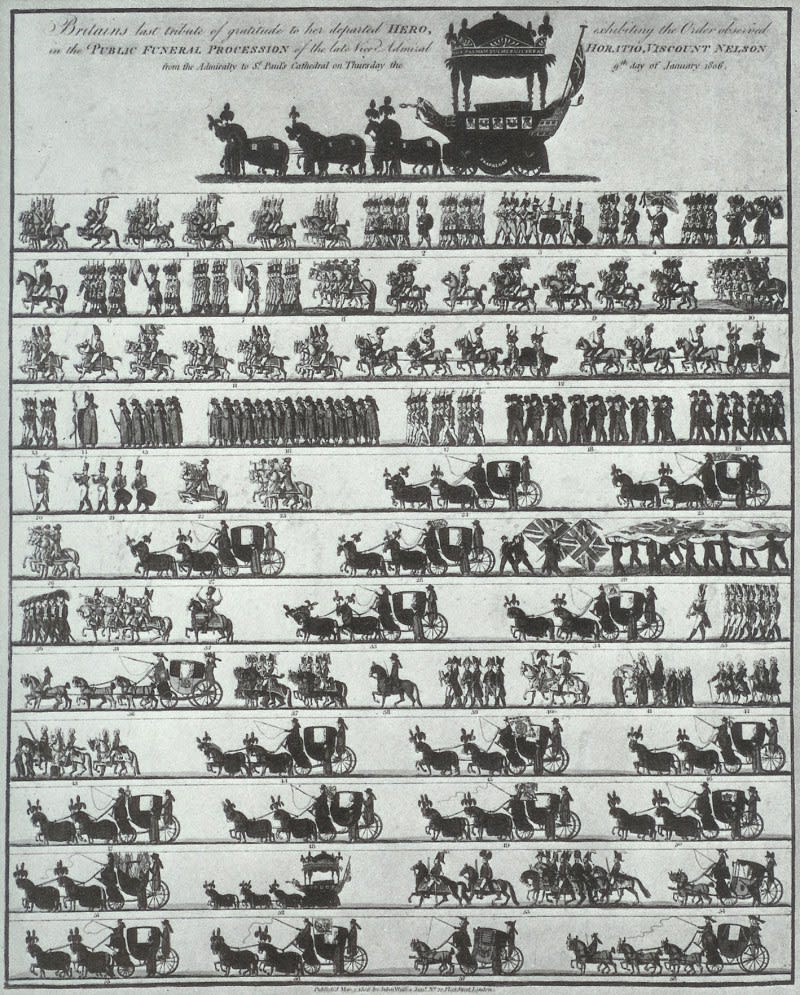 Britains last tribute of gratitude to her departed HERO, exhibiting the Order observed
in the PUBLIC FUNERAL PROCESSION of the late Vice Admiral HORATIO, VISCOUNT NELSON
from the Admiralty to St. Paul's Cathedral on Thursday the 9th day of January 1806.
TRAFALGAR
1 2 3 4 5
6 7 8 9 10
11 12
13 14 15 16 17 18 19
20 21 22 23 24 25
26 27 28 29
30 31 32 33 34 35
36 37 38 39 40 41 42
43 44 45 46
47 48 49 50
51 52 53 54
55 56 57 58
Published by John Wallis Junr. No. Fleet Street London.